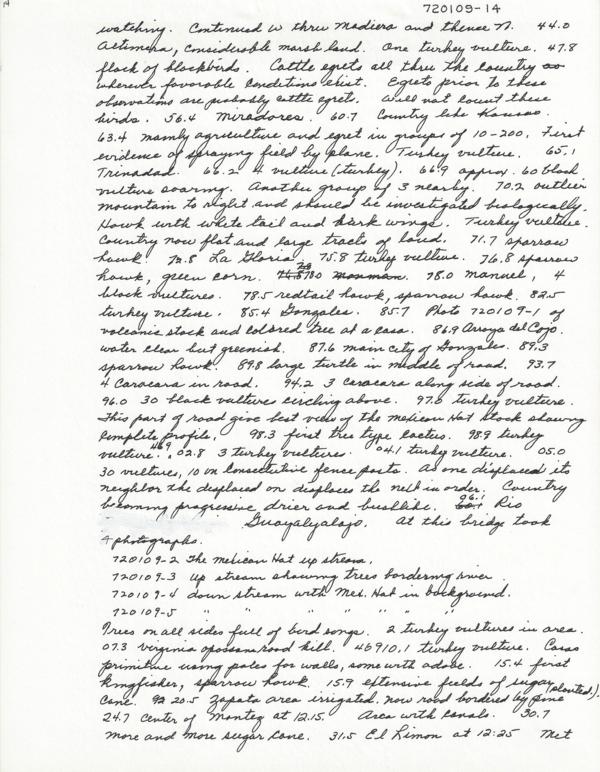 720109-14
watching. Continued W thru Madiera and thense N. 44.0
Altimera, considerable marsh land. One turkey vulture. 47.8
flock of blackbirds. Cattle egrets all thru the country
wherever favorable conditions exist. Egrets prior to these
observations are probably cattle egrets. Will not count these
birds. 56.4 Miradores. 60.7 Country like Kansas.
63.4 mainly agriculture and egret in groups of 10-200. First
evidence of spraying field by plane. Turkey vulture. 65.1
Trinadad. 66.2 4 vulture (turkey). 66.9 approx. 60 black
vulture soaring. Another group of 3 nearby. 70.2 outlier
mountain to right and should be investigated biologically.
Hawk with white tail and dark wings. Turkey vulture.
Country now flat and large tracts of land. 71.7 sparrow
hawk. 72.8 La Gloria. 75.8 turkey vulture. 76.8 sparrow
hawk, green corn. 78.0 Manuel, 4
black vultures. 78.5 redtail hawk, sparrow hawk. 82.5
turkey vulture. 85.4 Gonzales. 85.7 Photo 720109-1 of
volcanic stock and colored tree at a casa. 86.9 Arroyo del Cojo.
water clear but greenish. 87.6 main city of Gonzales. 89.3
sparrow hawk. 89.8 large turtle in middle of road. 93.7
4 Caracara in road. 94.2 3 caracara along side of road.
96.0 30 black vultures circling above. 97.6 turkey vulture.
This part of road give best view of the Mexican Hat stock showing
complete profile. 98.3 first tree type cactus. 98.9 turkey
vulture. 469,02.8 3 turkey vultures. 04.1 turkey vulture. 05.0
30 vultures, 10 on consecutive fence posts. As one displaced its
neighbor the displaced on displaces the next in order. Country
becoming progressive drier and bushlike. 06.1 Rio
Guayalyalajo. At this bridge took
4 photographs.
720109-2 The Mexican Hat up stream.
720109-3 up stream showing trees bordering river
720109-4 down stream with Mex. Hat in background.
720109-5 " " " " " " "
Trees on all sides full of bird songs. 2 turkey vultures in area.
07.3 virginia opossum road kill. 46910.1 turkey vulture. Casas
primitive using poles for walls, some with adobe. 15.4 first
kingfisher, sparrow hawk. 15.9 extensive fields of sugar
cane. 20.5 Zapata area irrigated. now road bordered by pine (planted).
24.7 center of Montez at 12.15. Area with canals. 30.7
more and more sugar cane. 31.5 El Limon at 12:25 Met